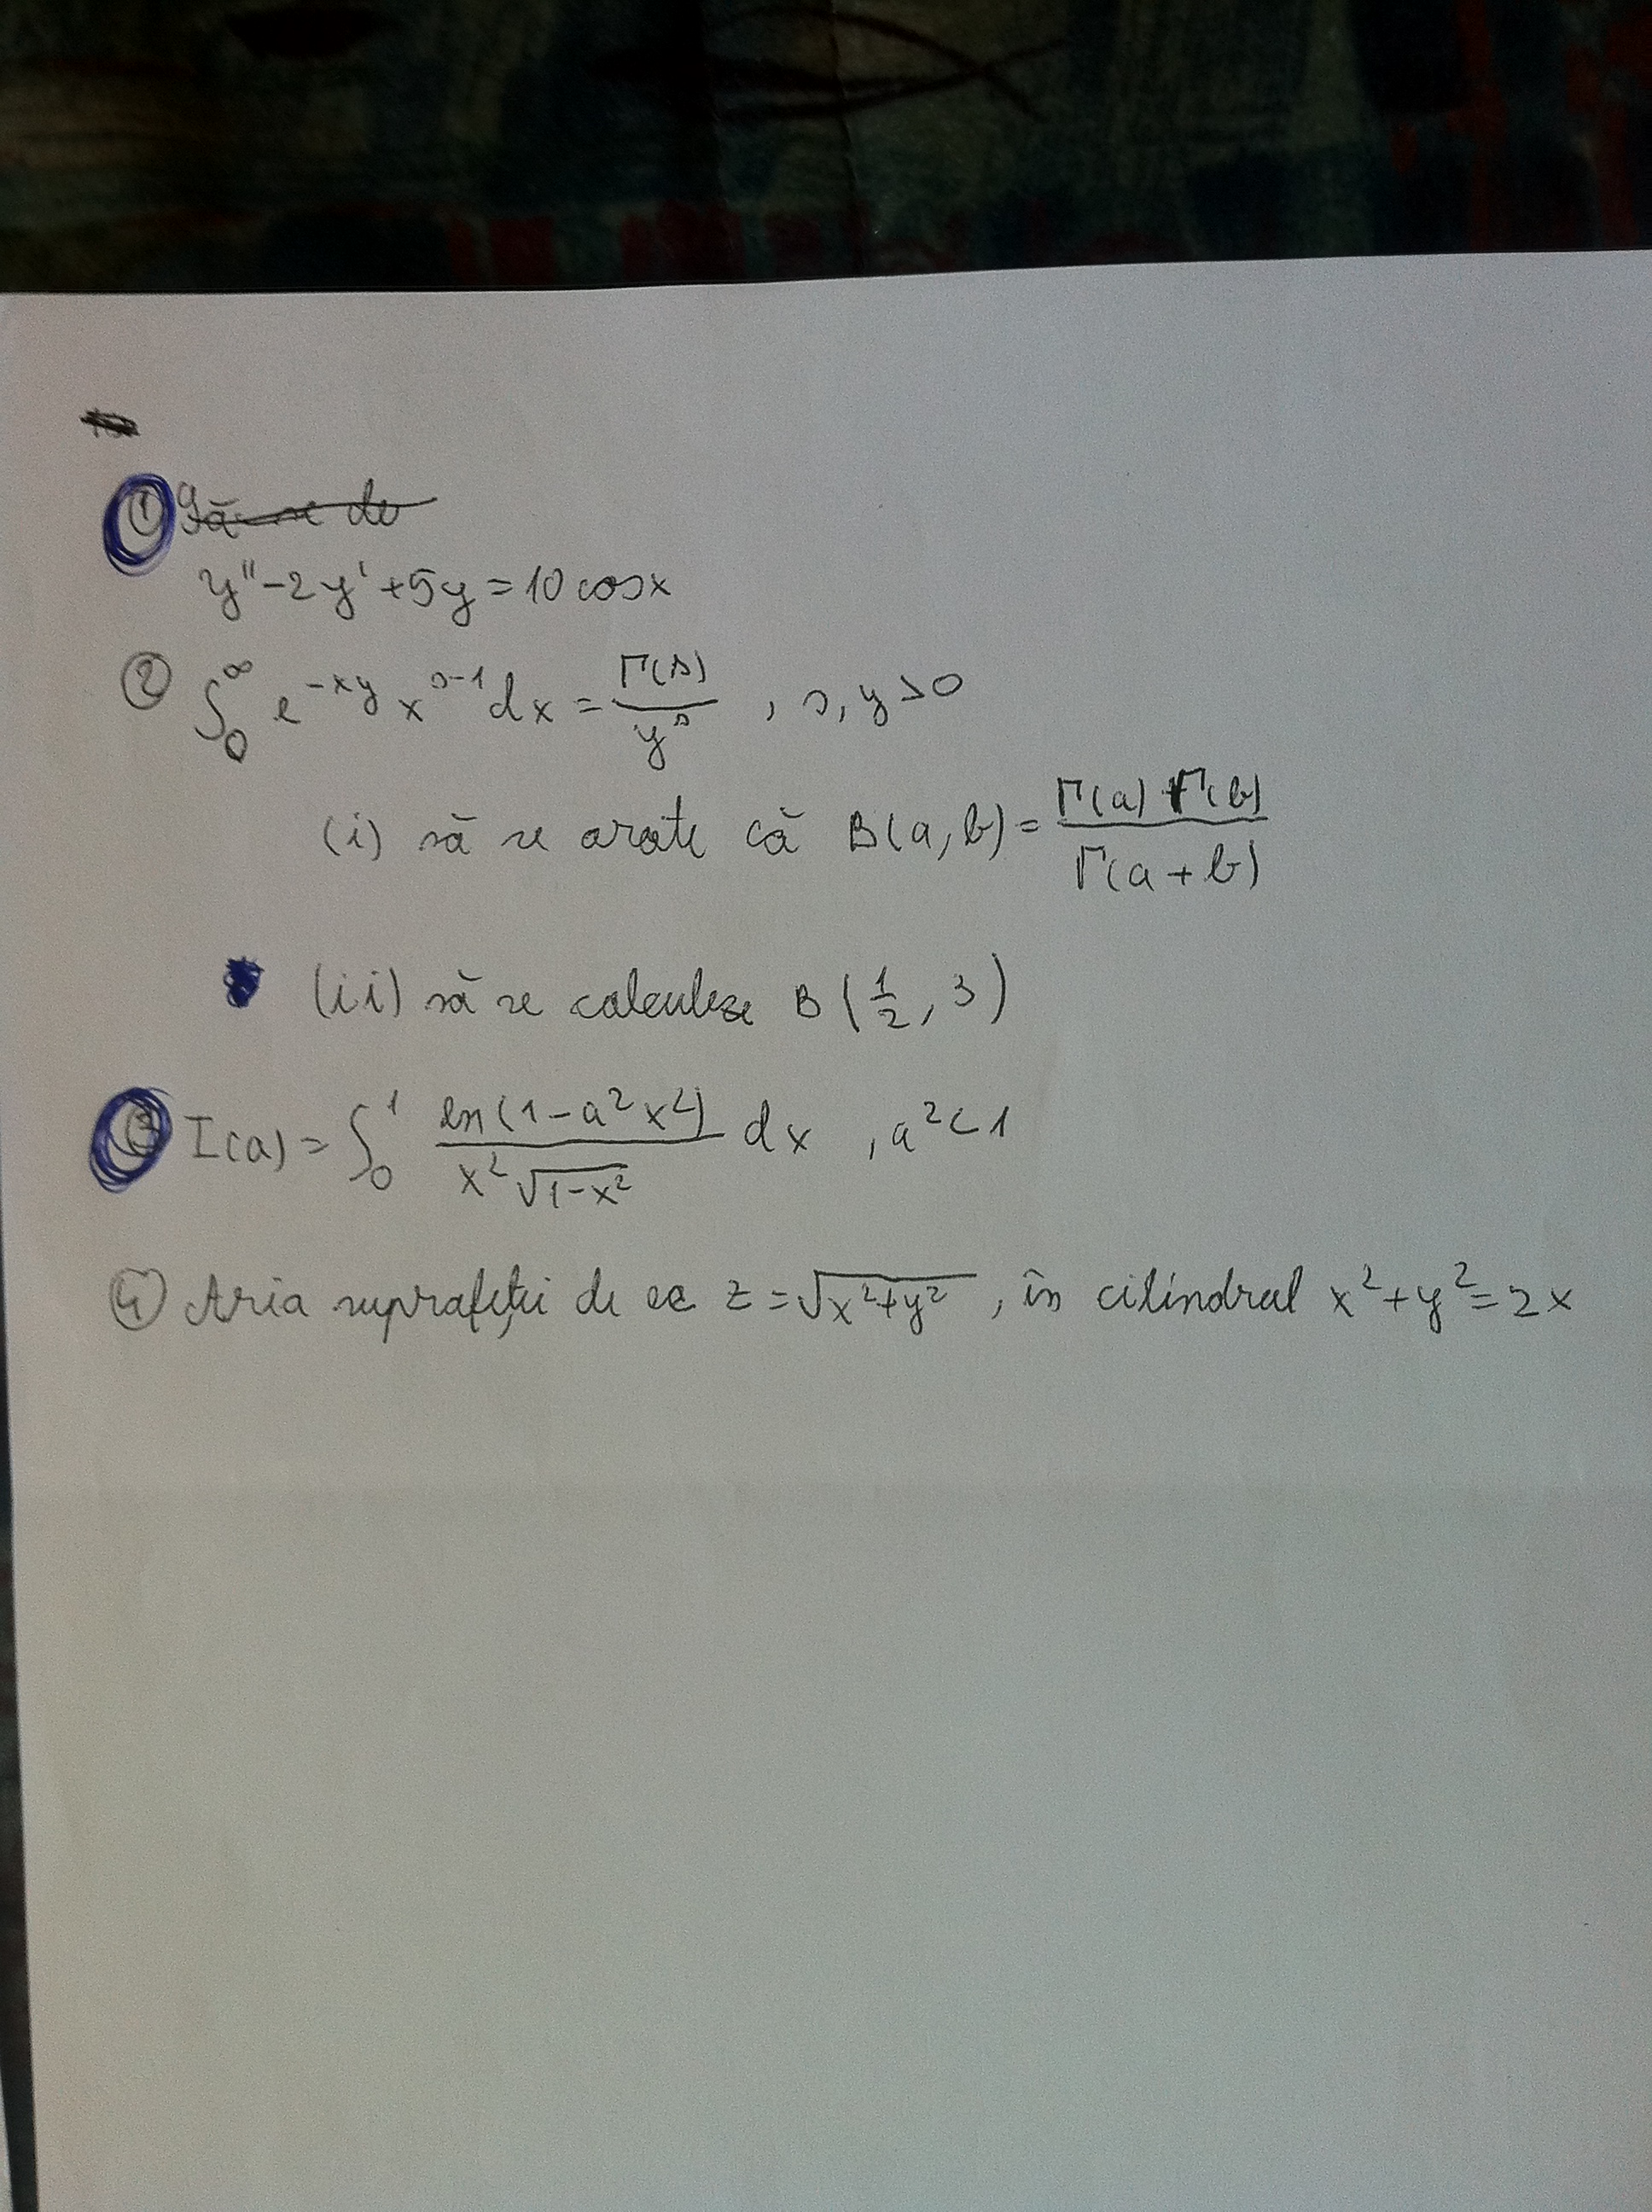 ①
y'' - 2y' + 5y = 10 cosx
② ∫₀^∞ e^(-xy) x^(s-1) dx = Γ(s)/y^s , s, y > 0
(i) să se arate că B(a, b) = Γ(a) · Γ(b) / Γ(a + b)
(ii) să se calculeze B(1/2, 3)
③ I(a) = ∫₀¹ ln(1 - a²x²) / (x²√(1-x²)) dx , a² < 1
④ Aria suprafeței de ec z = √(x²+y²) , în cilindrul x² + y² = 2x